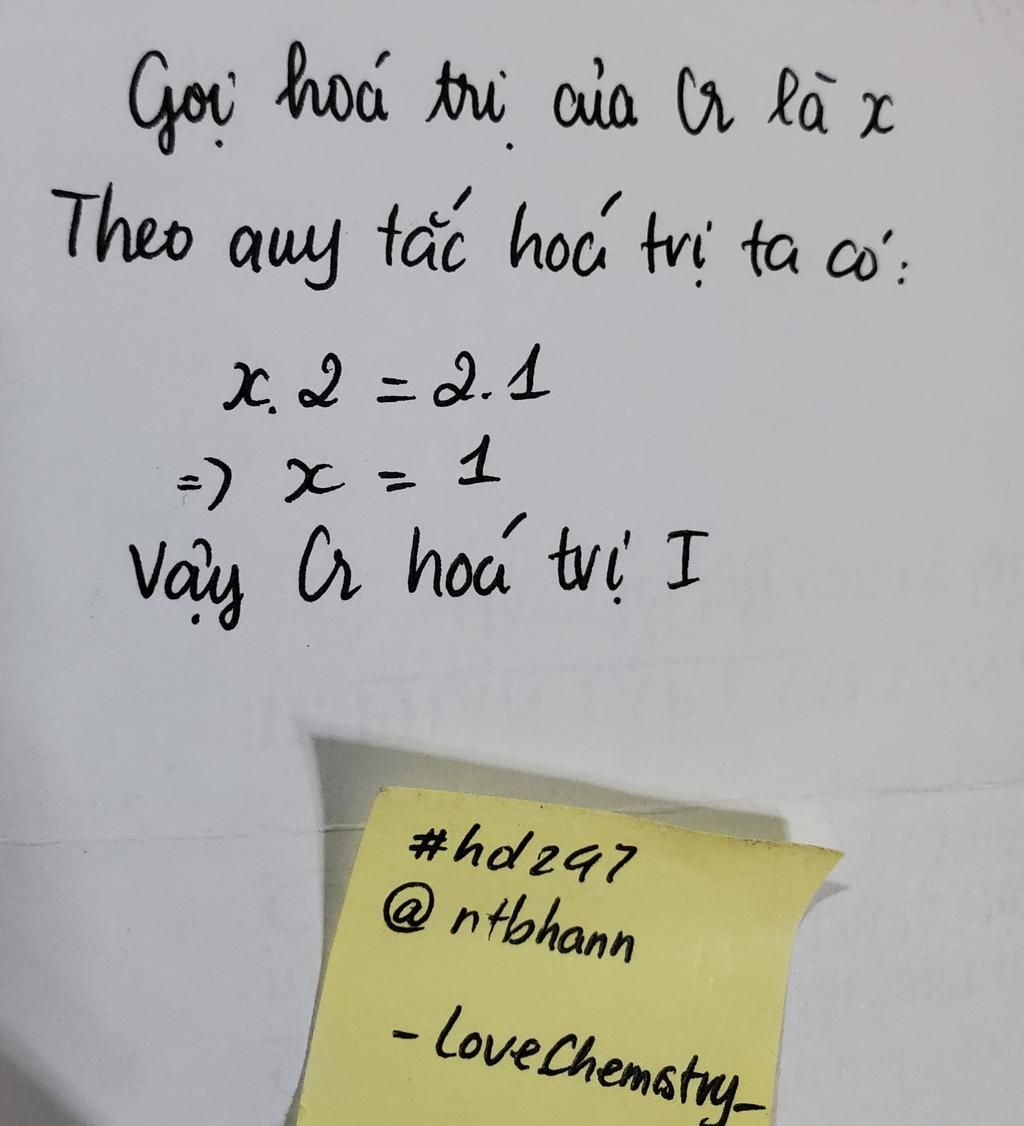 Gọi hoá trị của Cr là x
Theo quy tắc hoá trị ta có:
x. 2 = 2. 1
=> x = 1
Vậy Cr hoá trị I
#hdz97
@ntbhann
- LoveChemstry_